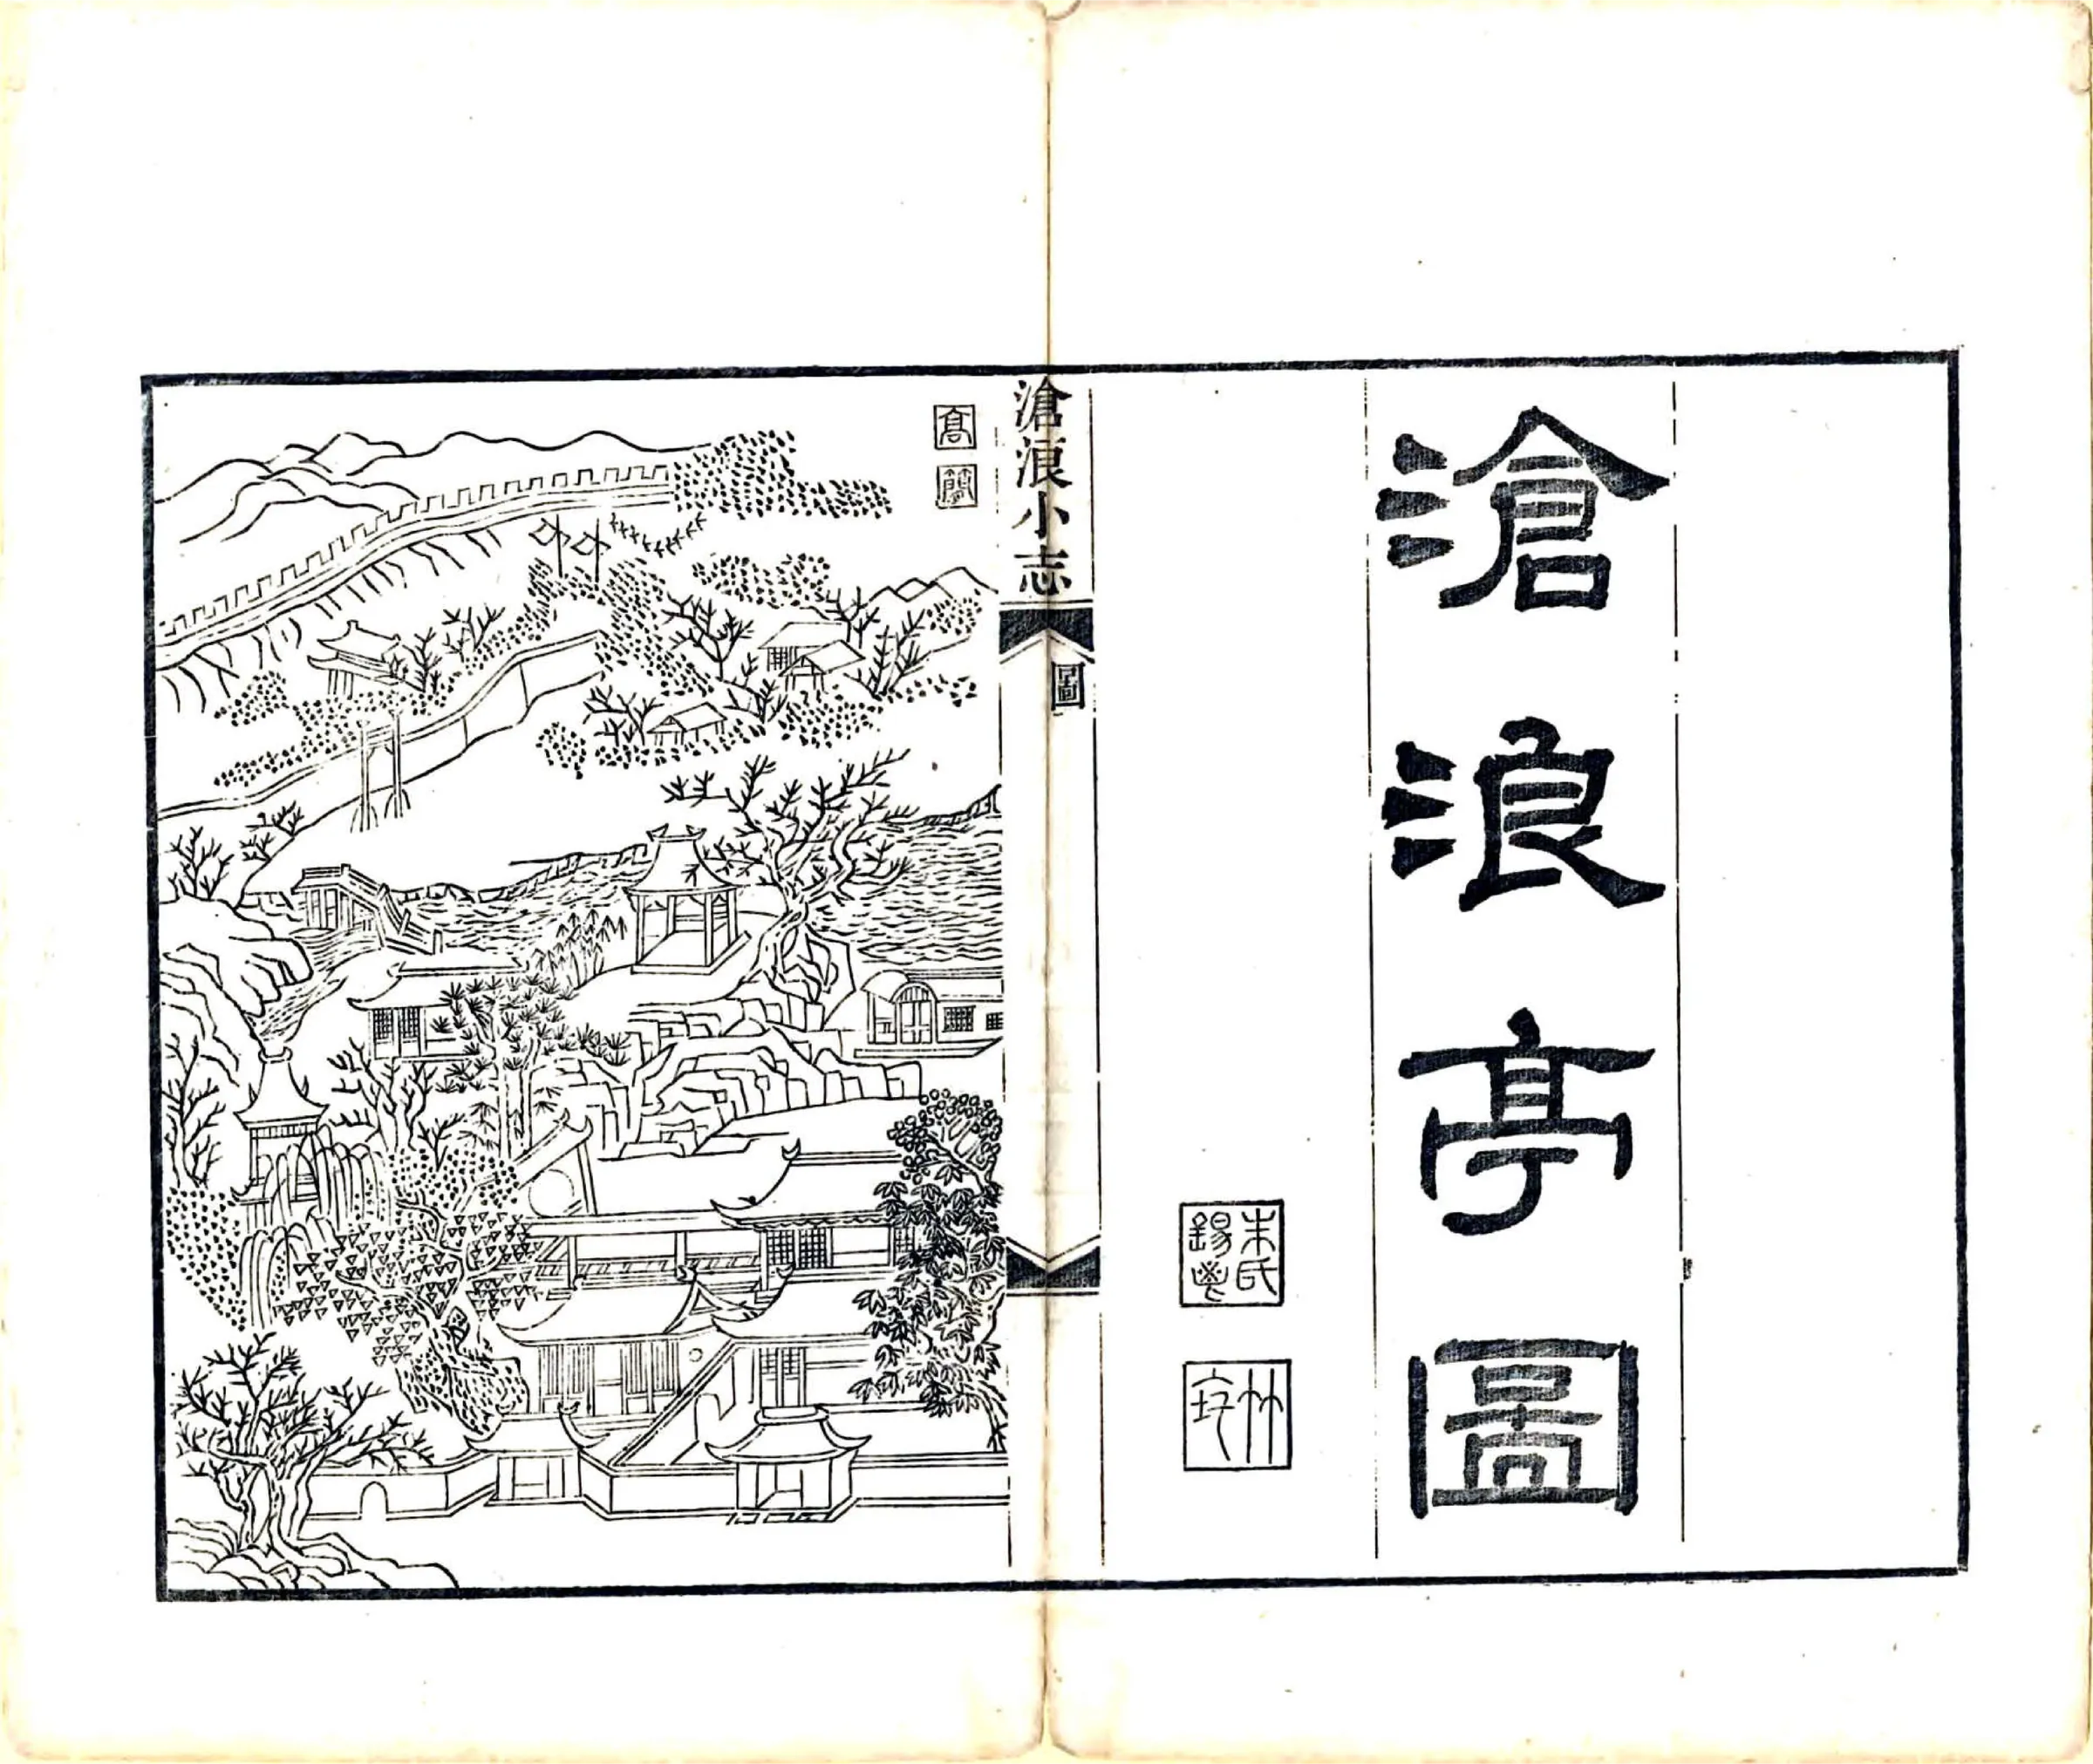 滄浪亭圖
朱氏
滄浪小志
圖
高